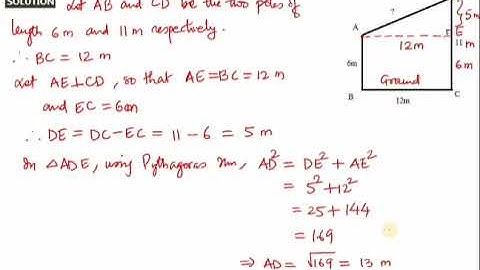 SOLUTION Let AB and CD be the two poles of
length 6m and 11m respectively.
∴ BC = 12 m
Let AE⊥CD, so that AE=BC= 12 m
and EC = 6cm
∴ DE = DC-EC = 11 - 6 = 5 m
In △ADE, using Pythagoras Thm, AD² = DE² + AE²
= 5² + 12²
= 25 + 144
= 169
⇒ AD = √169 = 13 m
?
5m
A
E
12m
11m
6m
6m
Ground
B
C
12m